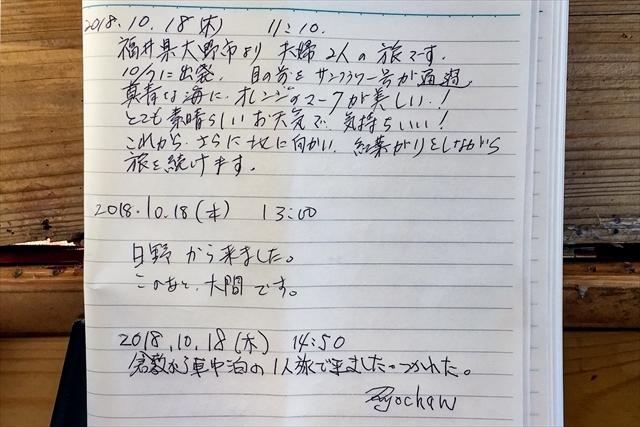 2018.10.18(木) 11:10.
福井県大野市より 夫婦2人の旅です。
10/7に出発、目の前をサンフラワー号が通過。
真青な海に、オレンジのマークが美しい!
とても素晴らしいお天気で、気持ちいい!
これから、さらに北に向かい、紅葉がりをしながら
旅を続けます。
2018.10.18(木) 13:00
日野から来ました。
このあと、大間です。
2018.10.18(木) 14:50
倉敷から車中泊の1人旅で来ました。つかれた。
Ryochan